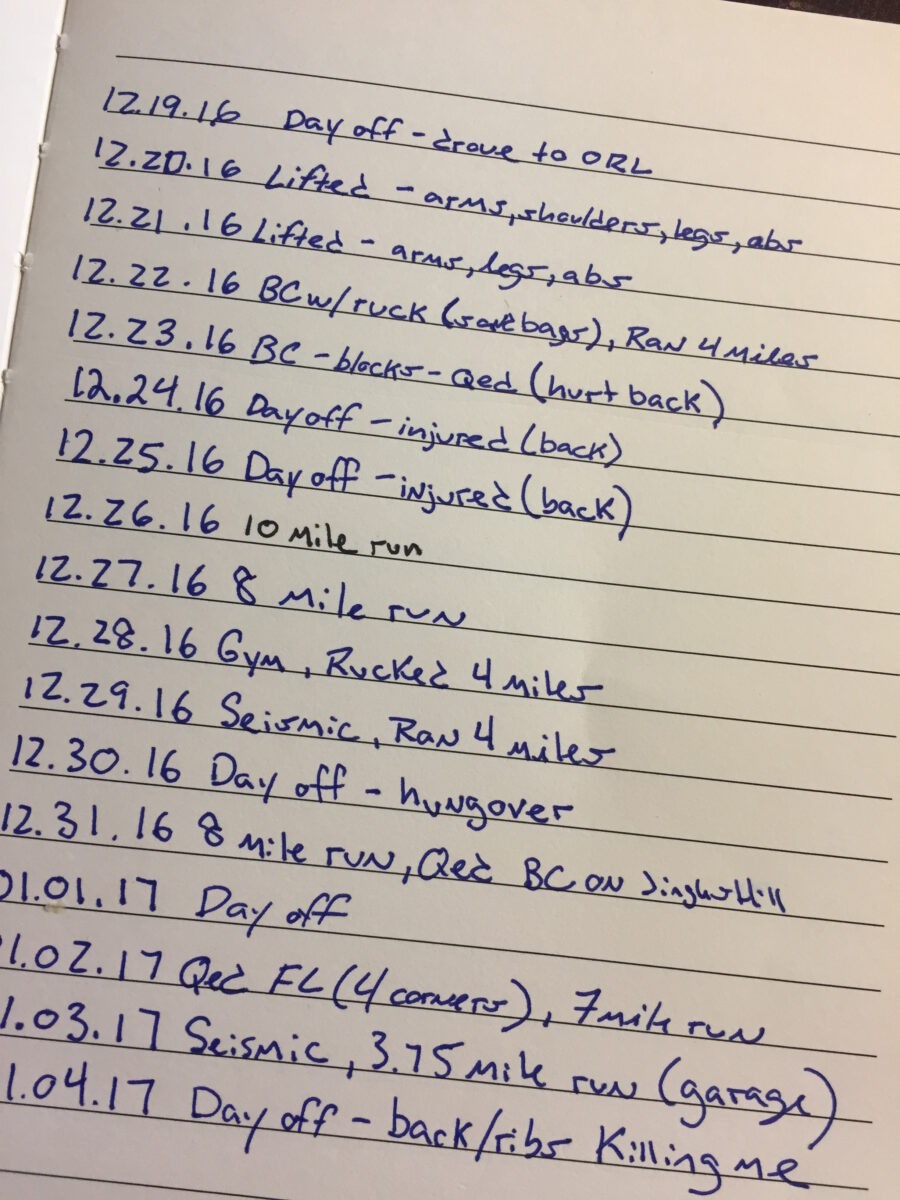 12.19.16 Day off - drove to ORL
12.20.16 Lifted - arms, shoulders, legs, abs
12.21.16 Lifted - arms, legs, abs
12.22.16 BC w/ruck (sandbags), Ran 4 miles
12.23.16 BC - blocks - Qed (hurt back)
12.24.16 Day off - injured (back)
12.25.16 Day off - injured (back)
12.26.16 10 mile run
12.27.16 8 mile run
12.28.16 Gym, Rucked 4 miles
12.29.16 Seismic, Ran 4 miles
12.30.16 Day off - hungover
12.31.16 8 mile run, Qed BC on Hill
01.01.17 Day off
1.02.17 Qed FL (4 corners), 7 mile run
1.03.17 Seismic, 3.75 mile run (garage)
1.04.17 Day off - back/ribs killing me